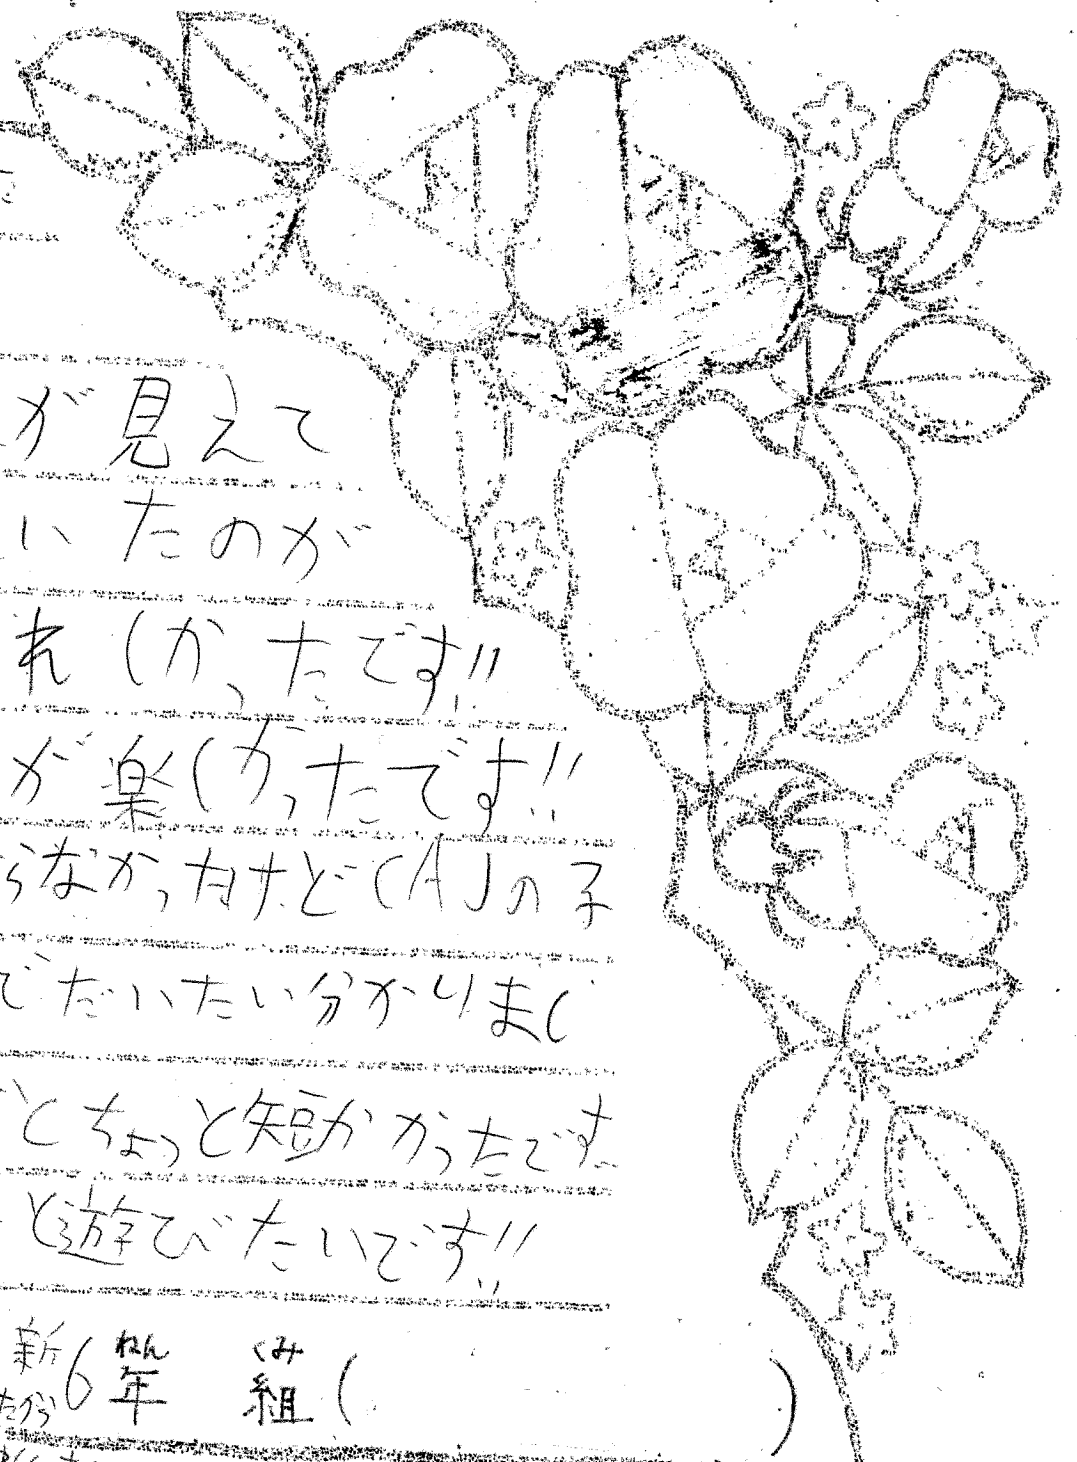 が見えて
いたのが
れしかったです!!
が楽しかったです!!
らなかったけど「A」の子
でだいたい分かりまし
とちょっと短かかったです
と遊びたいです!!
新6年 組( )
ねん くみ
たから